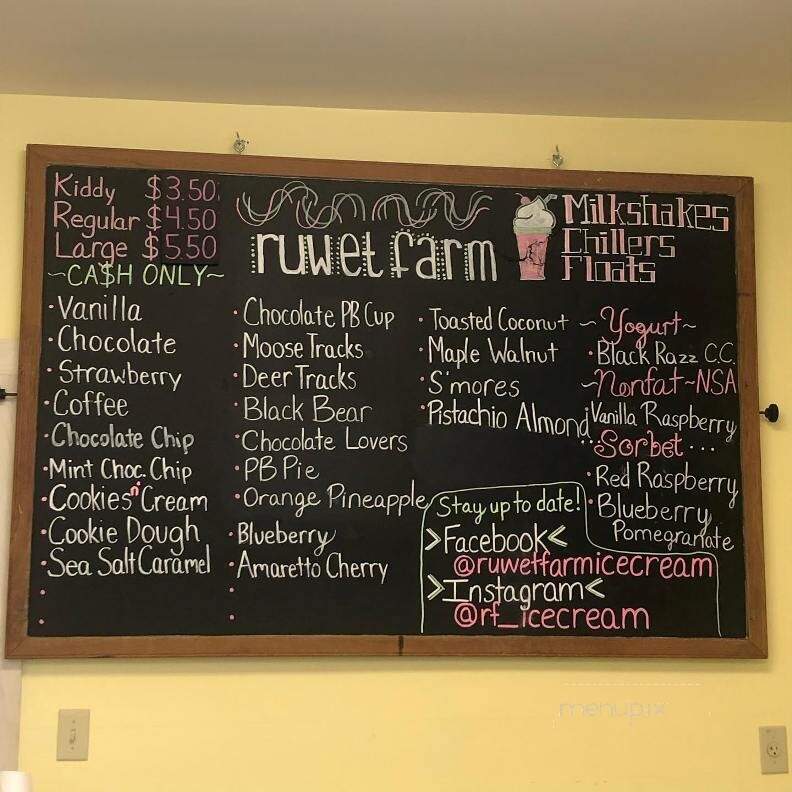 Kiddy $3.50
Regular $4.50
Large $5.50
~CA$H ONLY~
ruwet farm
Milkshakes
Chillers
Floats
·Vanilla
·Chocolate
·Strawberry
·Coffee
·Chocolate Chip
·Mint Choc. Chip
·Cookies n' Cream
·Cookie Dough
·Sea Salt Caramel
·Chocolate PB Cup
·Moose Tracks
·Deer Tracks
·Black Bear
·Chocolate Lovers
·PB Pie
·Orange Pineapple
·Blueberry
·Amaretto Cherry
·Toasted Coconut
·Maple Walnut
·S'mores
·Pistachio Almond
~Yogurt~
·Black Razz C.C.
~Nonfat~NSA
Vanilla Raspberry
...Sorbet...
·Red Raspberry
·Blueberry
Pomegranate
Stay up to date!
>Facebook<
@ruwetfarmicecream
>Instagram<
@rf_icecream
menupix